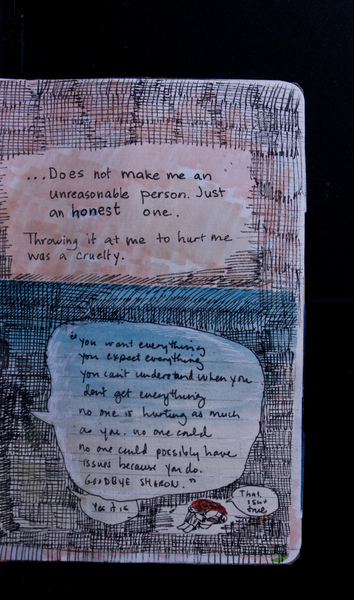 ...Does not make me an
unreasonable person. Just
an honest one.
Throwing it at me to hurt me
was a cruelty.
"you want everything
you expect everything
you can't understand when you
don't get everything
no one is hurting as much
as you. no one could
no one could possibly have
issues because you do.
GOODBYE SHARON."
Yes it is
That
isn't
true